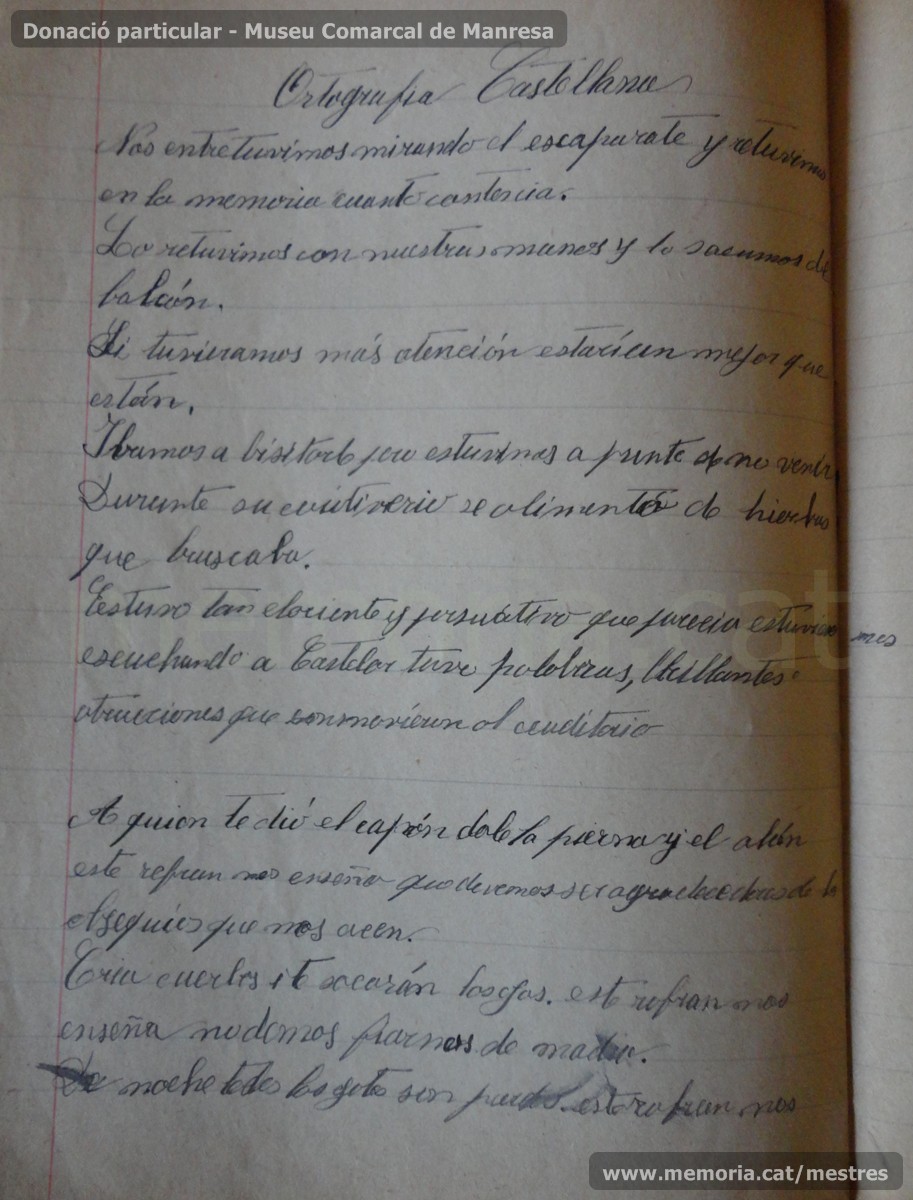 Donació particular - Museu Comarcal de Manresa
Ortografia Castellana
Nos entretuvimos mirando el escaparate y retuvimos
en la memoria cuanto contencia.
Lo retuvimos con nuestras manos y lo sacamos del
balcón.
Si tuvieramos más atención estarían mejor que
están.
Ibamos a bisitarle pero estuvimos a punto de no venir
Durante su cautiverio se alimentó de hierbas
que buscaba.
Estuvo tan elocuente y persuativo que parecia estuviera
mos
escuchando a Castelar tuvo palabras, brillantes
que conmovieron al auditorio
A quien te dió el capón dale la pierna y el alón
este refran nos enseña que devemos ser agradecedores de
obsequios que nos acen.
Cria cuerbos i te sacarán los ojos. este refran nos
enseña no demos fiarnos de nadie.
De noche todos los gatos son pardos. este refran nos
www.memoria.cat/mestres